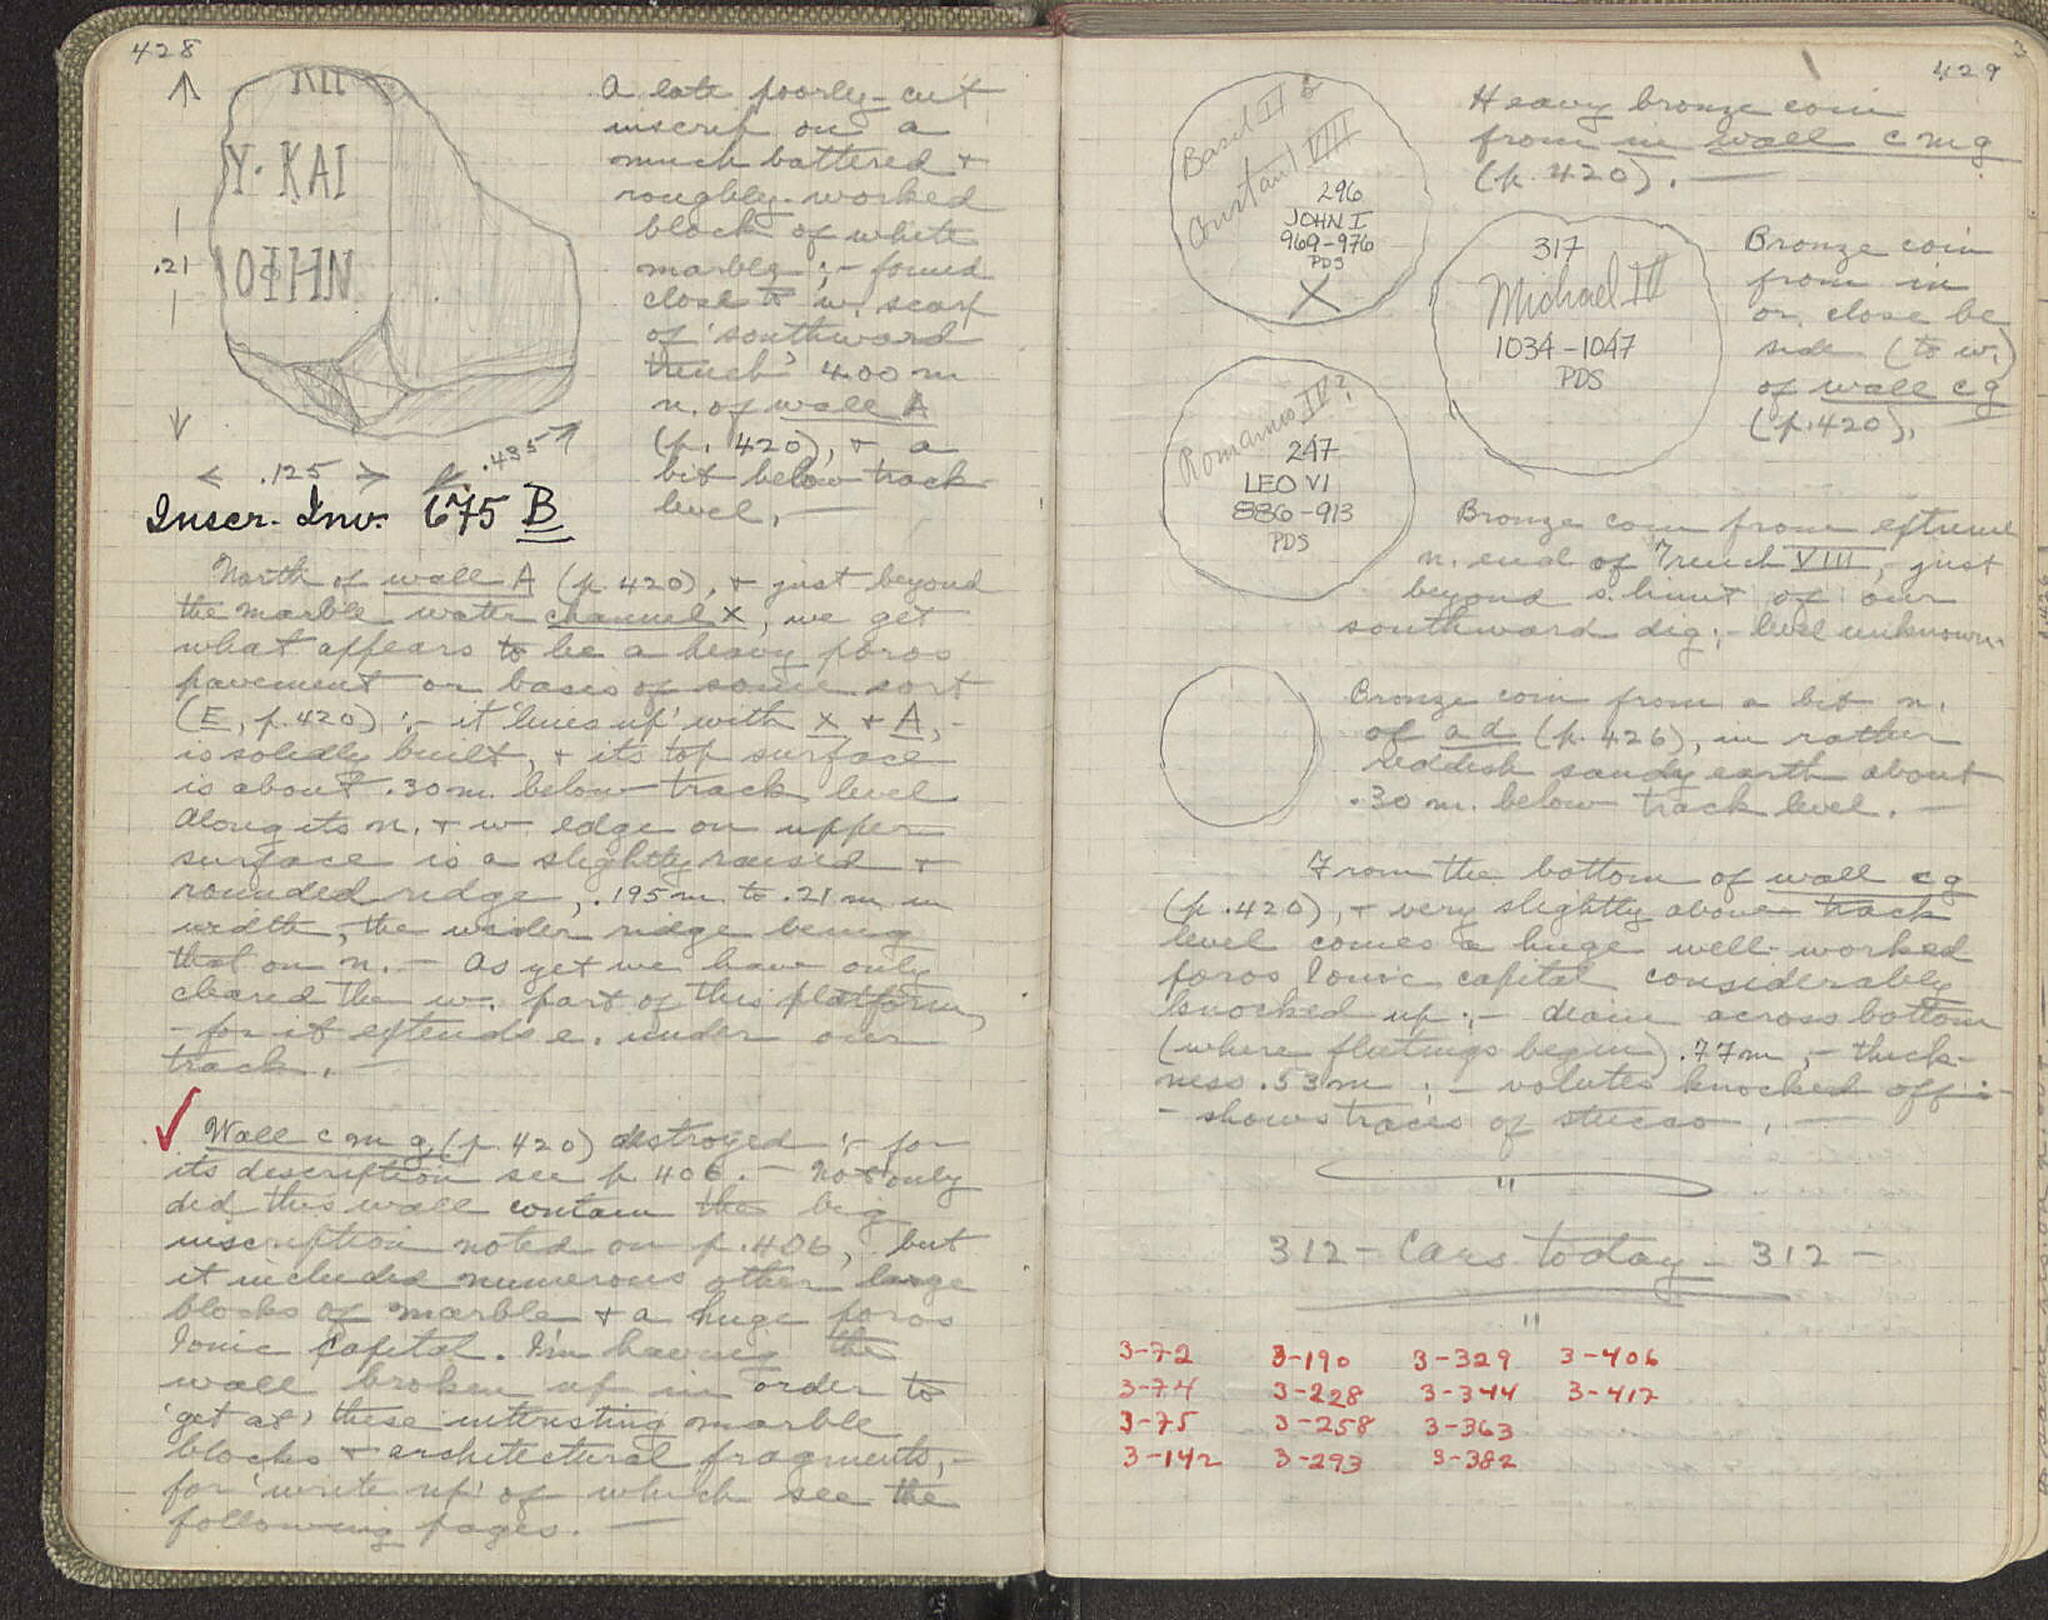 428
KII
Y· KAI
ΙΟΦΗΝ
.21
.125
.435
Inscr. Inv. 675 B
A late poorly-cut
inscrip on a
much battered +
roughly-worked
block of white
marble ;- found
close to w. scarp
of 'southward
trench' 4.00 m
n. of wall A
(p. 420), + a
bit below track
level. —
North of wall A (p. 420), + just beyond
the marble water channel X, we get
what appears to be a heavy poros
pavement or basis of some sort
(E, p. 420) :- it 'lines up' with X + A, -
is solidly built, + its top surface
is about .30 m. below track level
Along its n. + w edge on upper
surface is a slightly raised +
rounded ridge, .195 m. to .21 m in
width, the wider ridge being
that on n. — As yet we have only
cleared the w. part of this platform,
- for it extends e. under our
track. —
Wall c m g (p. 420) destroyed :- for
its description see p. 406. — Not only
did this wall contain the big
inscription noted on p. 406, but
it included numerous other large
blocks of marble + a huge poros
Ionic capital. I'm having the
wall broken up in order to
'get at' these interesting marble
blocks + architectural fragments, -
for 'write up' of which see the
following pages. —
429
Basil II &
Constant VIII
296
JOHN I
969-976
PDS
X
Heavy bronze coin
from in wall c m g
(p. 420). —
317
Michael IV
1034-1047
PDS
Bronze coin
from in
or close be
side (to w.)
of wall c g
(p. 420).
Romanus IV?
247
LEO VI
886-913
PDS
Bronze coin from extreme
n. end of Trench VIII, just
beyond s. limit of our
southward dig ;- level unknown.
Bronze coin from a bit n.
of a d (p. 426), in rather
reddish sandy earth about
.30 m. below track level. —
From the bottom of wall c g
(p. 420), + very slightly above track
level comes a huge well-worked
poros Ionic capital considerably
knocked up :- diam across bottom
(where flutings begin) .77 m, - thick-
ness .53 m ; - volutes knocked off :-
- shows traces of stucco. —
"
312 - Cars today - 312 -
"
3-72 3-190 3-329 3-406
3-74 3-228 3-344 3-417
3-75 3-258 3-363
3-142 3-293 3-382